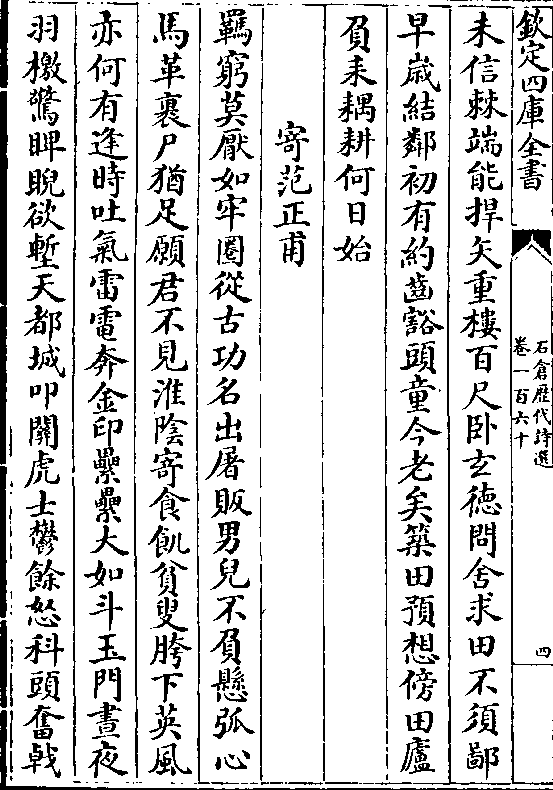 欽定四庫全書
石倉歴代詩選
卷一百六十
四
未信棘端能捍矢重樓百尺卧玄徳問舍求田不須鄙
早嵗結鄰初有約齒豁頭童今老矣築田預想傍田廬
負耒耦耕何日始
寄范正甫
羈窮莫厭如牢圈從古功名出屠販男兒不負懸弧心
馬革裹尸猶足願君不見淮隂寄食飢貧叟胯下英風
亦何有逢時吐氣雷電奔金印纍纍大如斗玉門晝夜
羽檄驚睥睨欲塹天都城叩關虎士鬱餘怒科頭奮戟